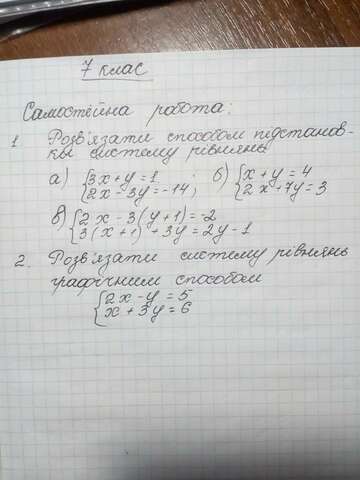 7 клас
Самостійна робота:
1 Розв'язати способом підстанов-
ки систему рівнянь
а) {3x+y=1 ; б) {x+y=4
2x-3y=-14; 2x+7y=3
в) {2x-3(y+1)=-2
3(x+1)+3y=2y-1
2. Розв'язати систему рівнянь
графічним способом
{2x-y=5
x+3y=6